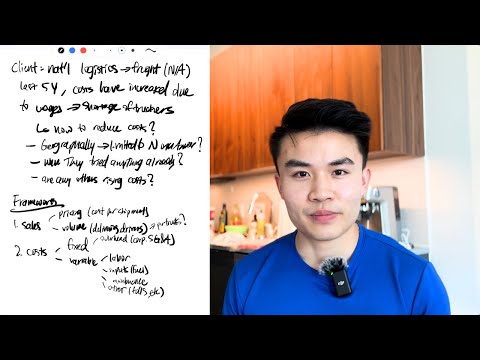 Client = nat'l logistics → freight (N/A)
last 5Y, costs have increased due
to wages → shortage of truckers
↳ how to reduce costs?
- Geographically → limited to N
- they tried anything already?
- are any others rising costs?
Frameworks
1. sales - pricing (cost per shipment)
- volume (delivering drivers) →
2. costs - fixed - overhead (corp. SG&A)
- variable - labor
- inputs (fuel)
- maintenance
- other (tolls, etc)